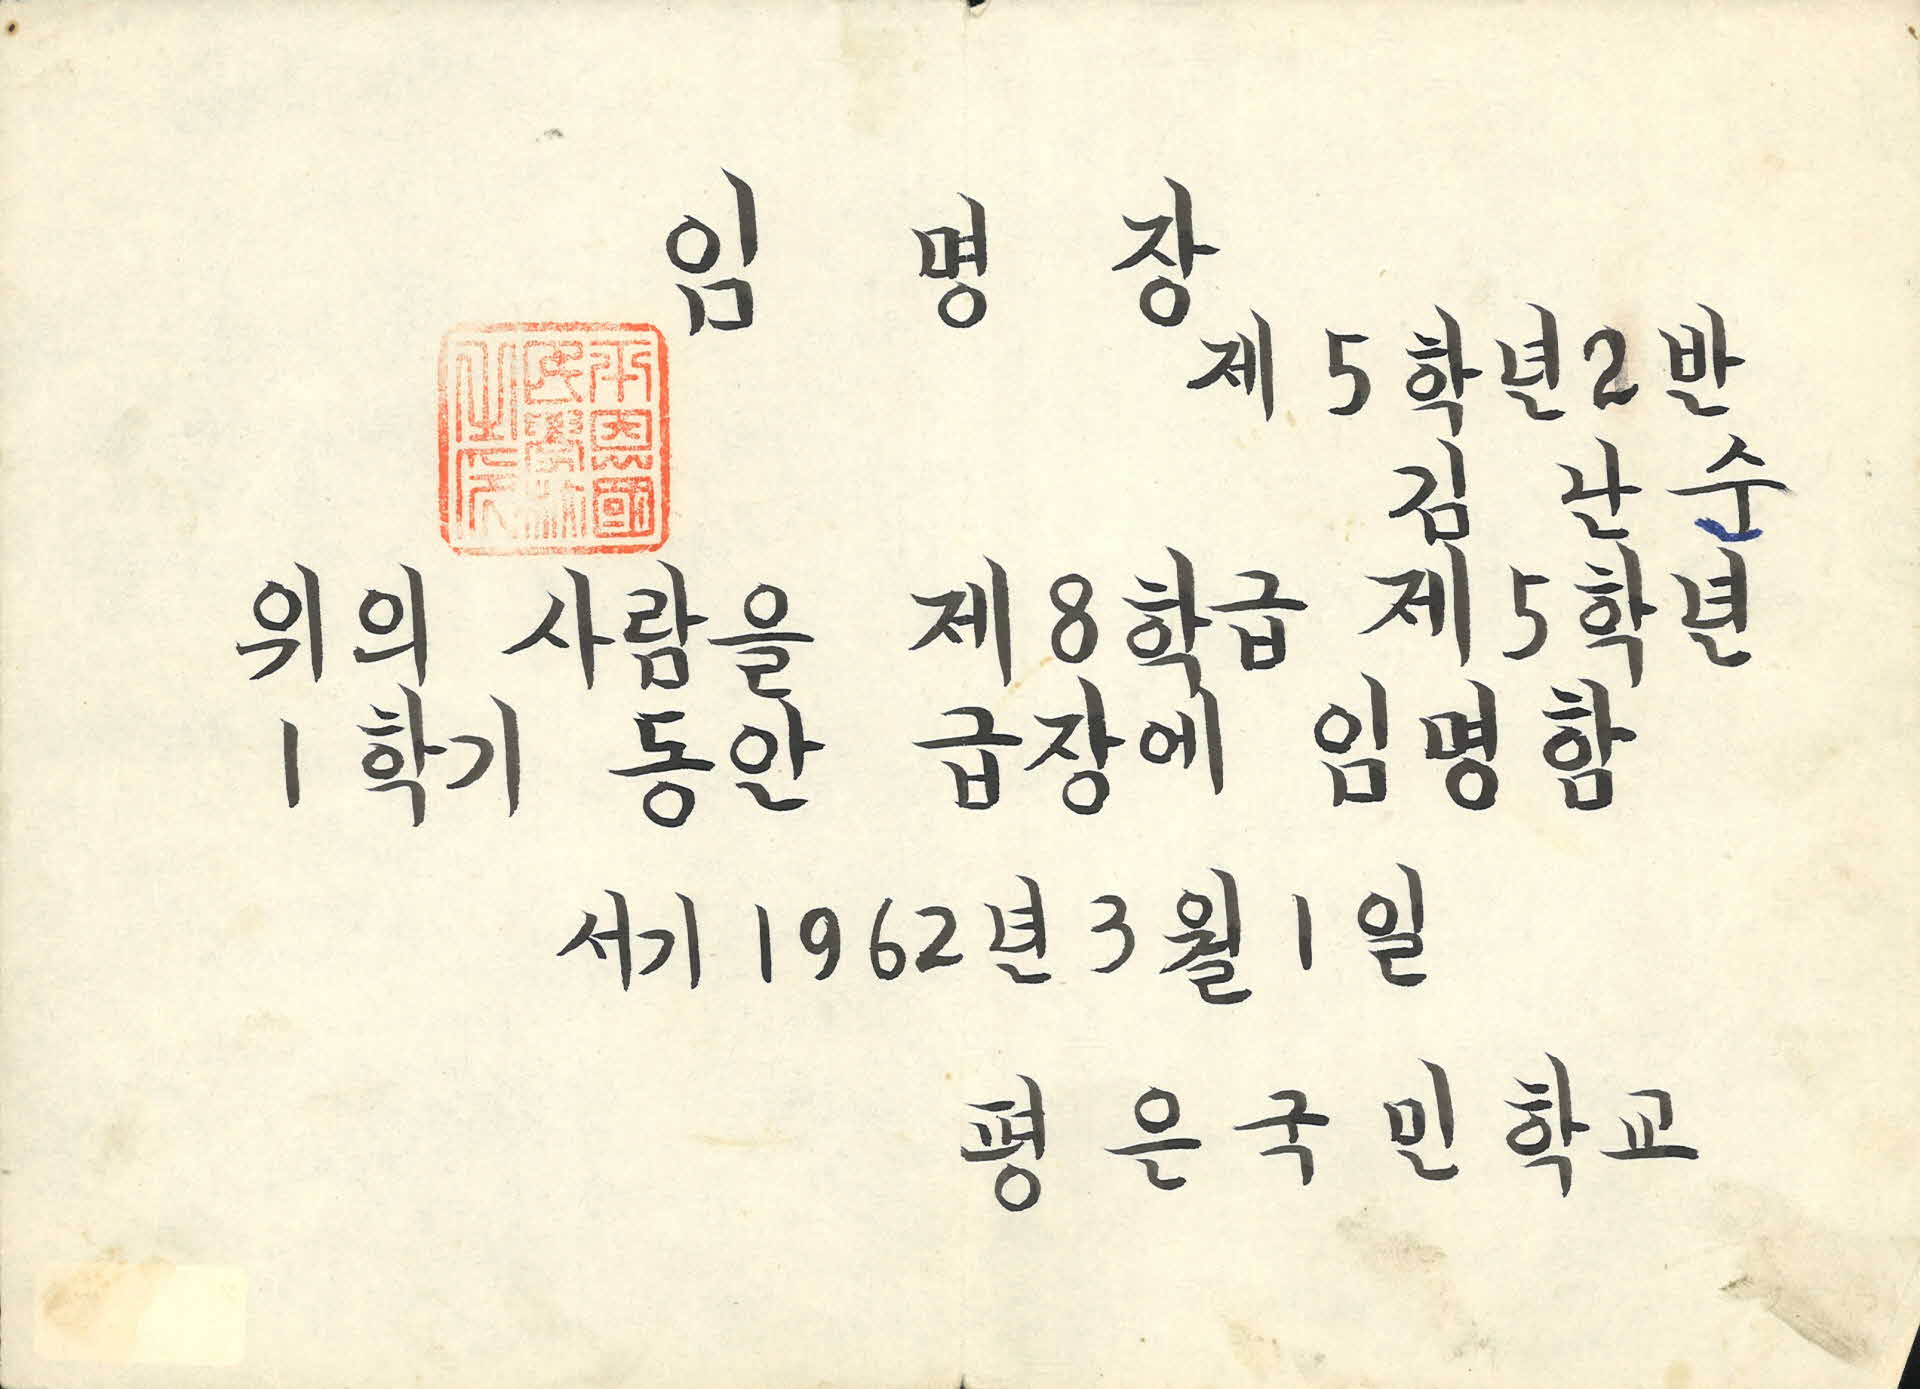 임 명 장
제 5 학년 2 반
김 난 순
위의 사람을 제 8 학급 제 5 학년
1 학기 동안 급장에 임명함
서기 1962년 3월 1일
평은국민학교
平恩國
民學校
之印